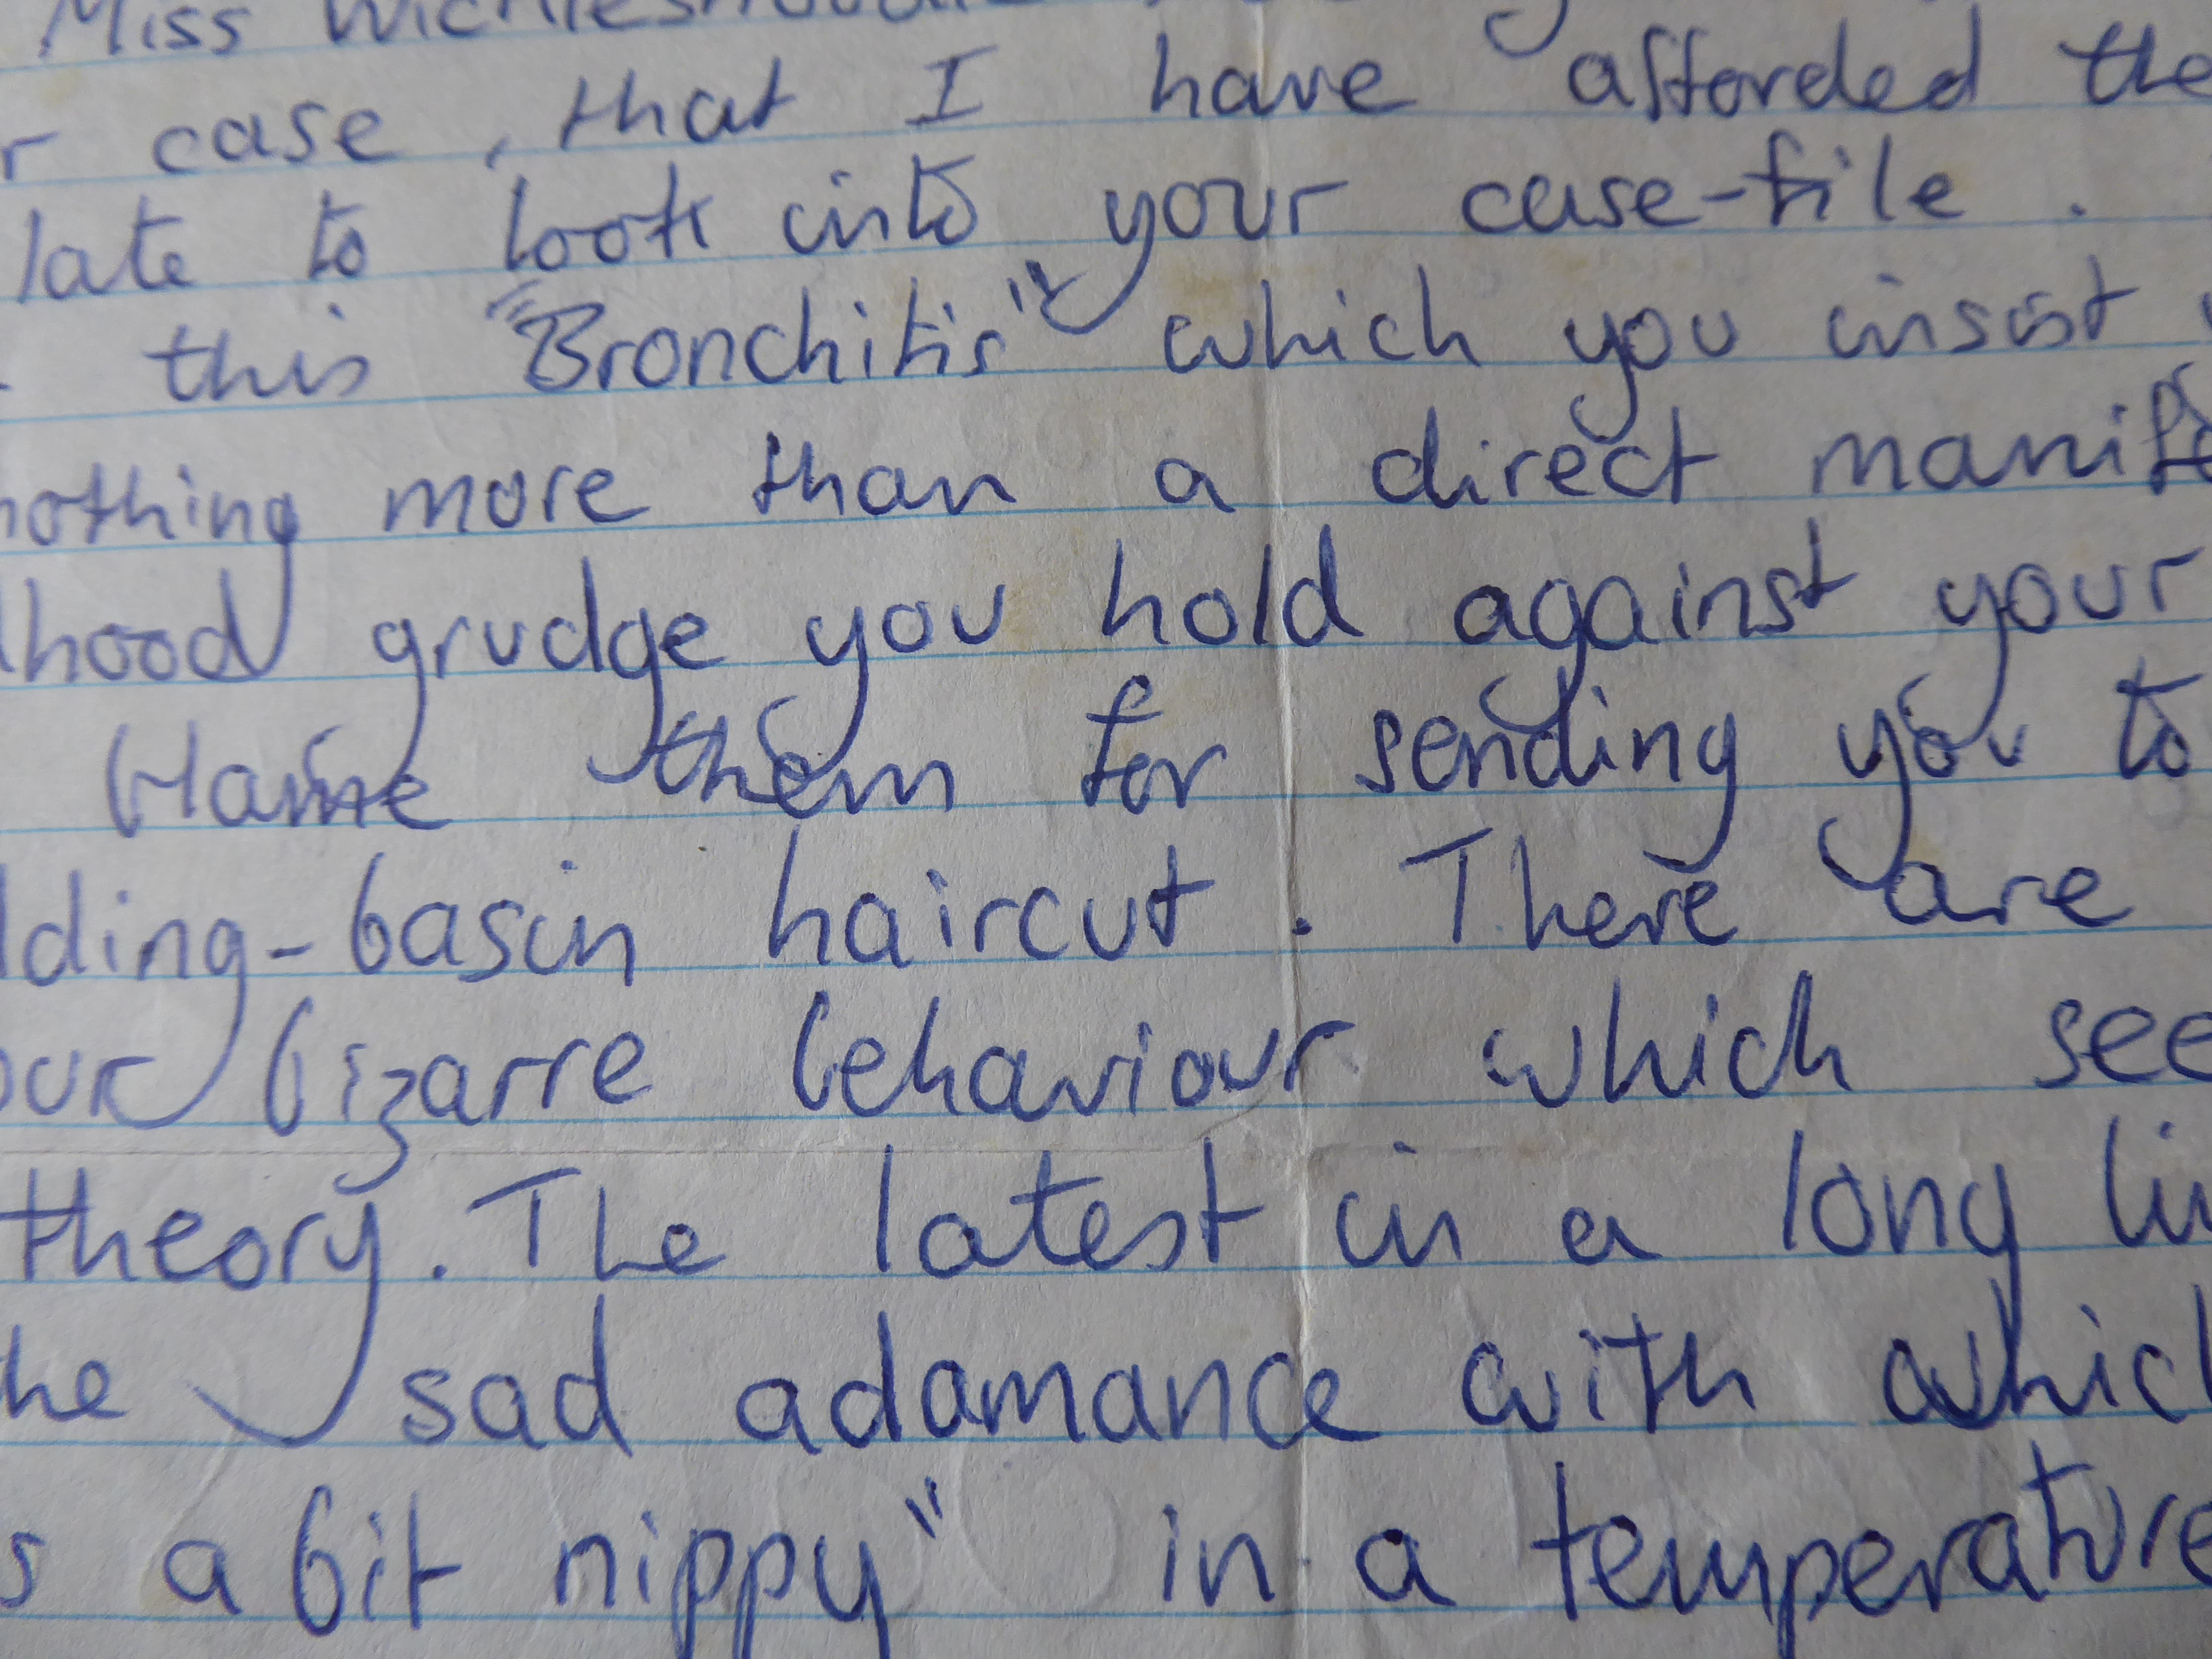 Miss
r case, that I have afforded the
late to look into your case-file.
this "Bronchitis" which you insist
nothing more than a direct manife
hood grudge you hold against your
them for sending you to
dding-basin haircut. There are
our bizarre behaviour which see
theory. The latest in a long li
he sad adamance with which
s a bit nippy" in a temperature